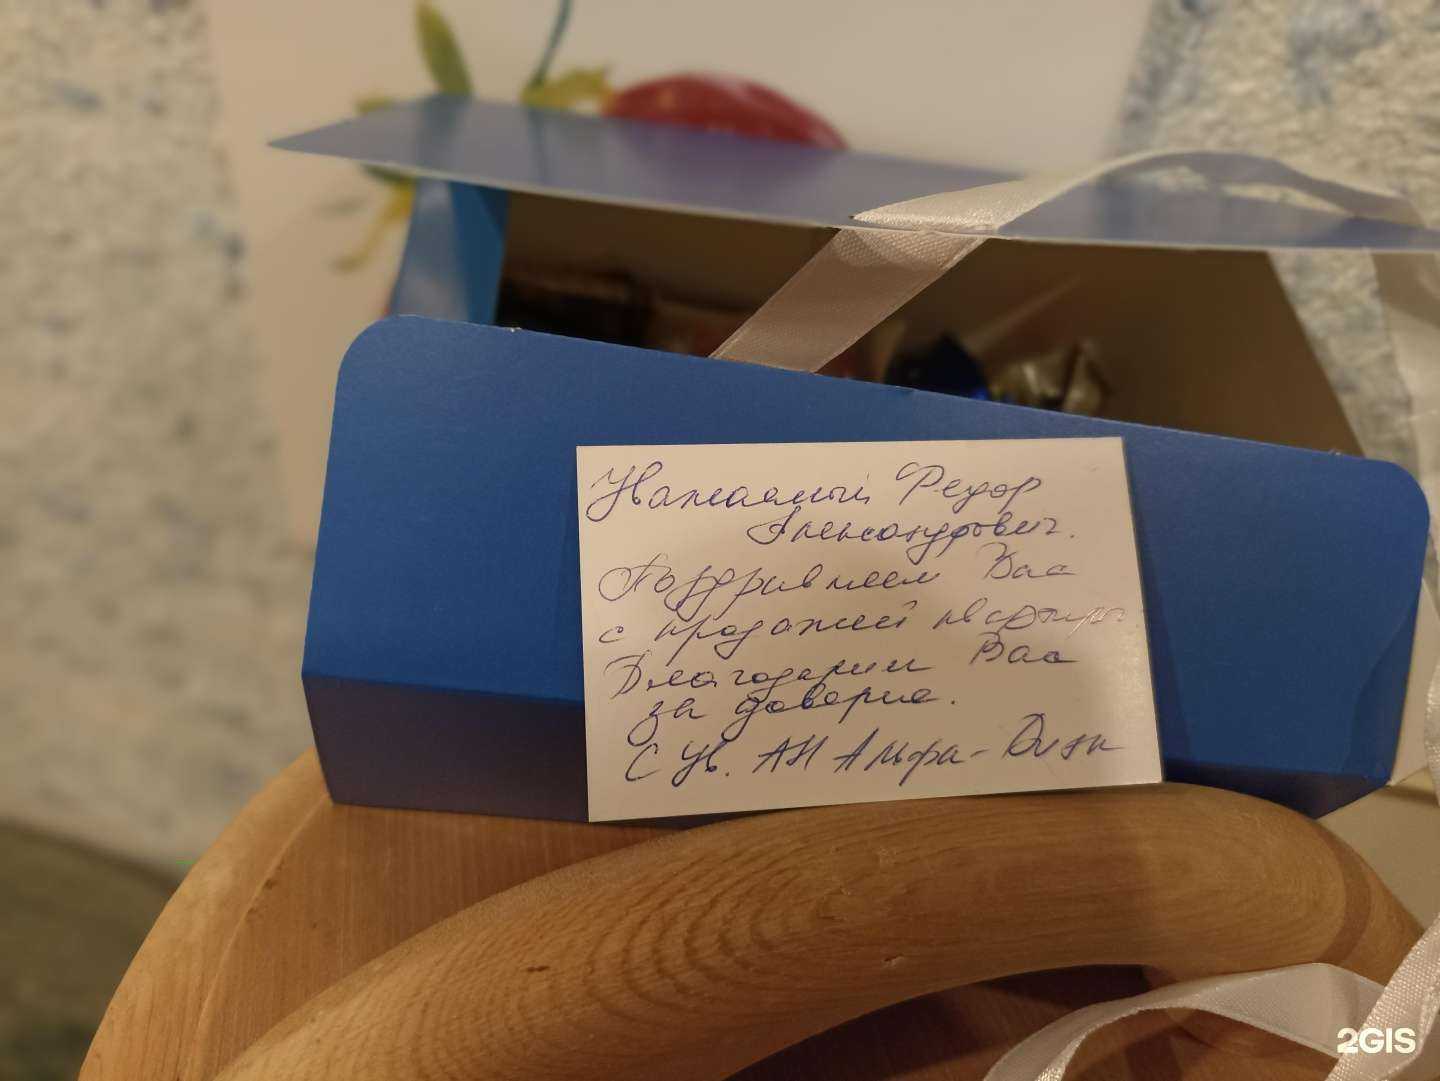 Уважаемый Федор
Александрович.
Поздравляем Вас
с продажей квартиры.
Благодарим Вас
за доверие.
С Ув. АН Альфа-Дизн
2GIS